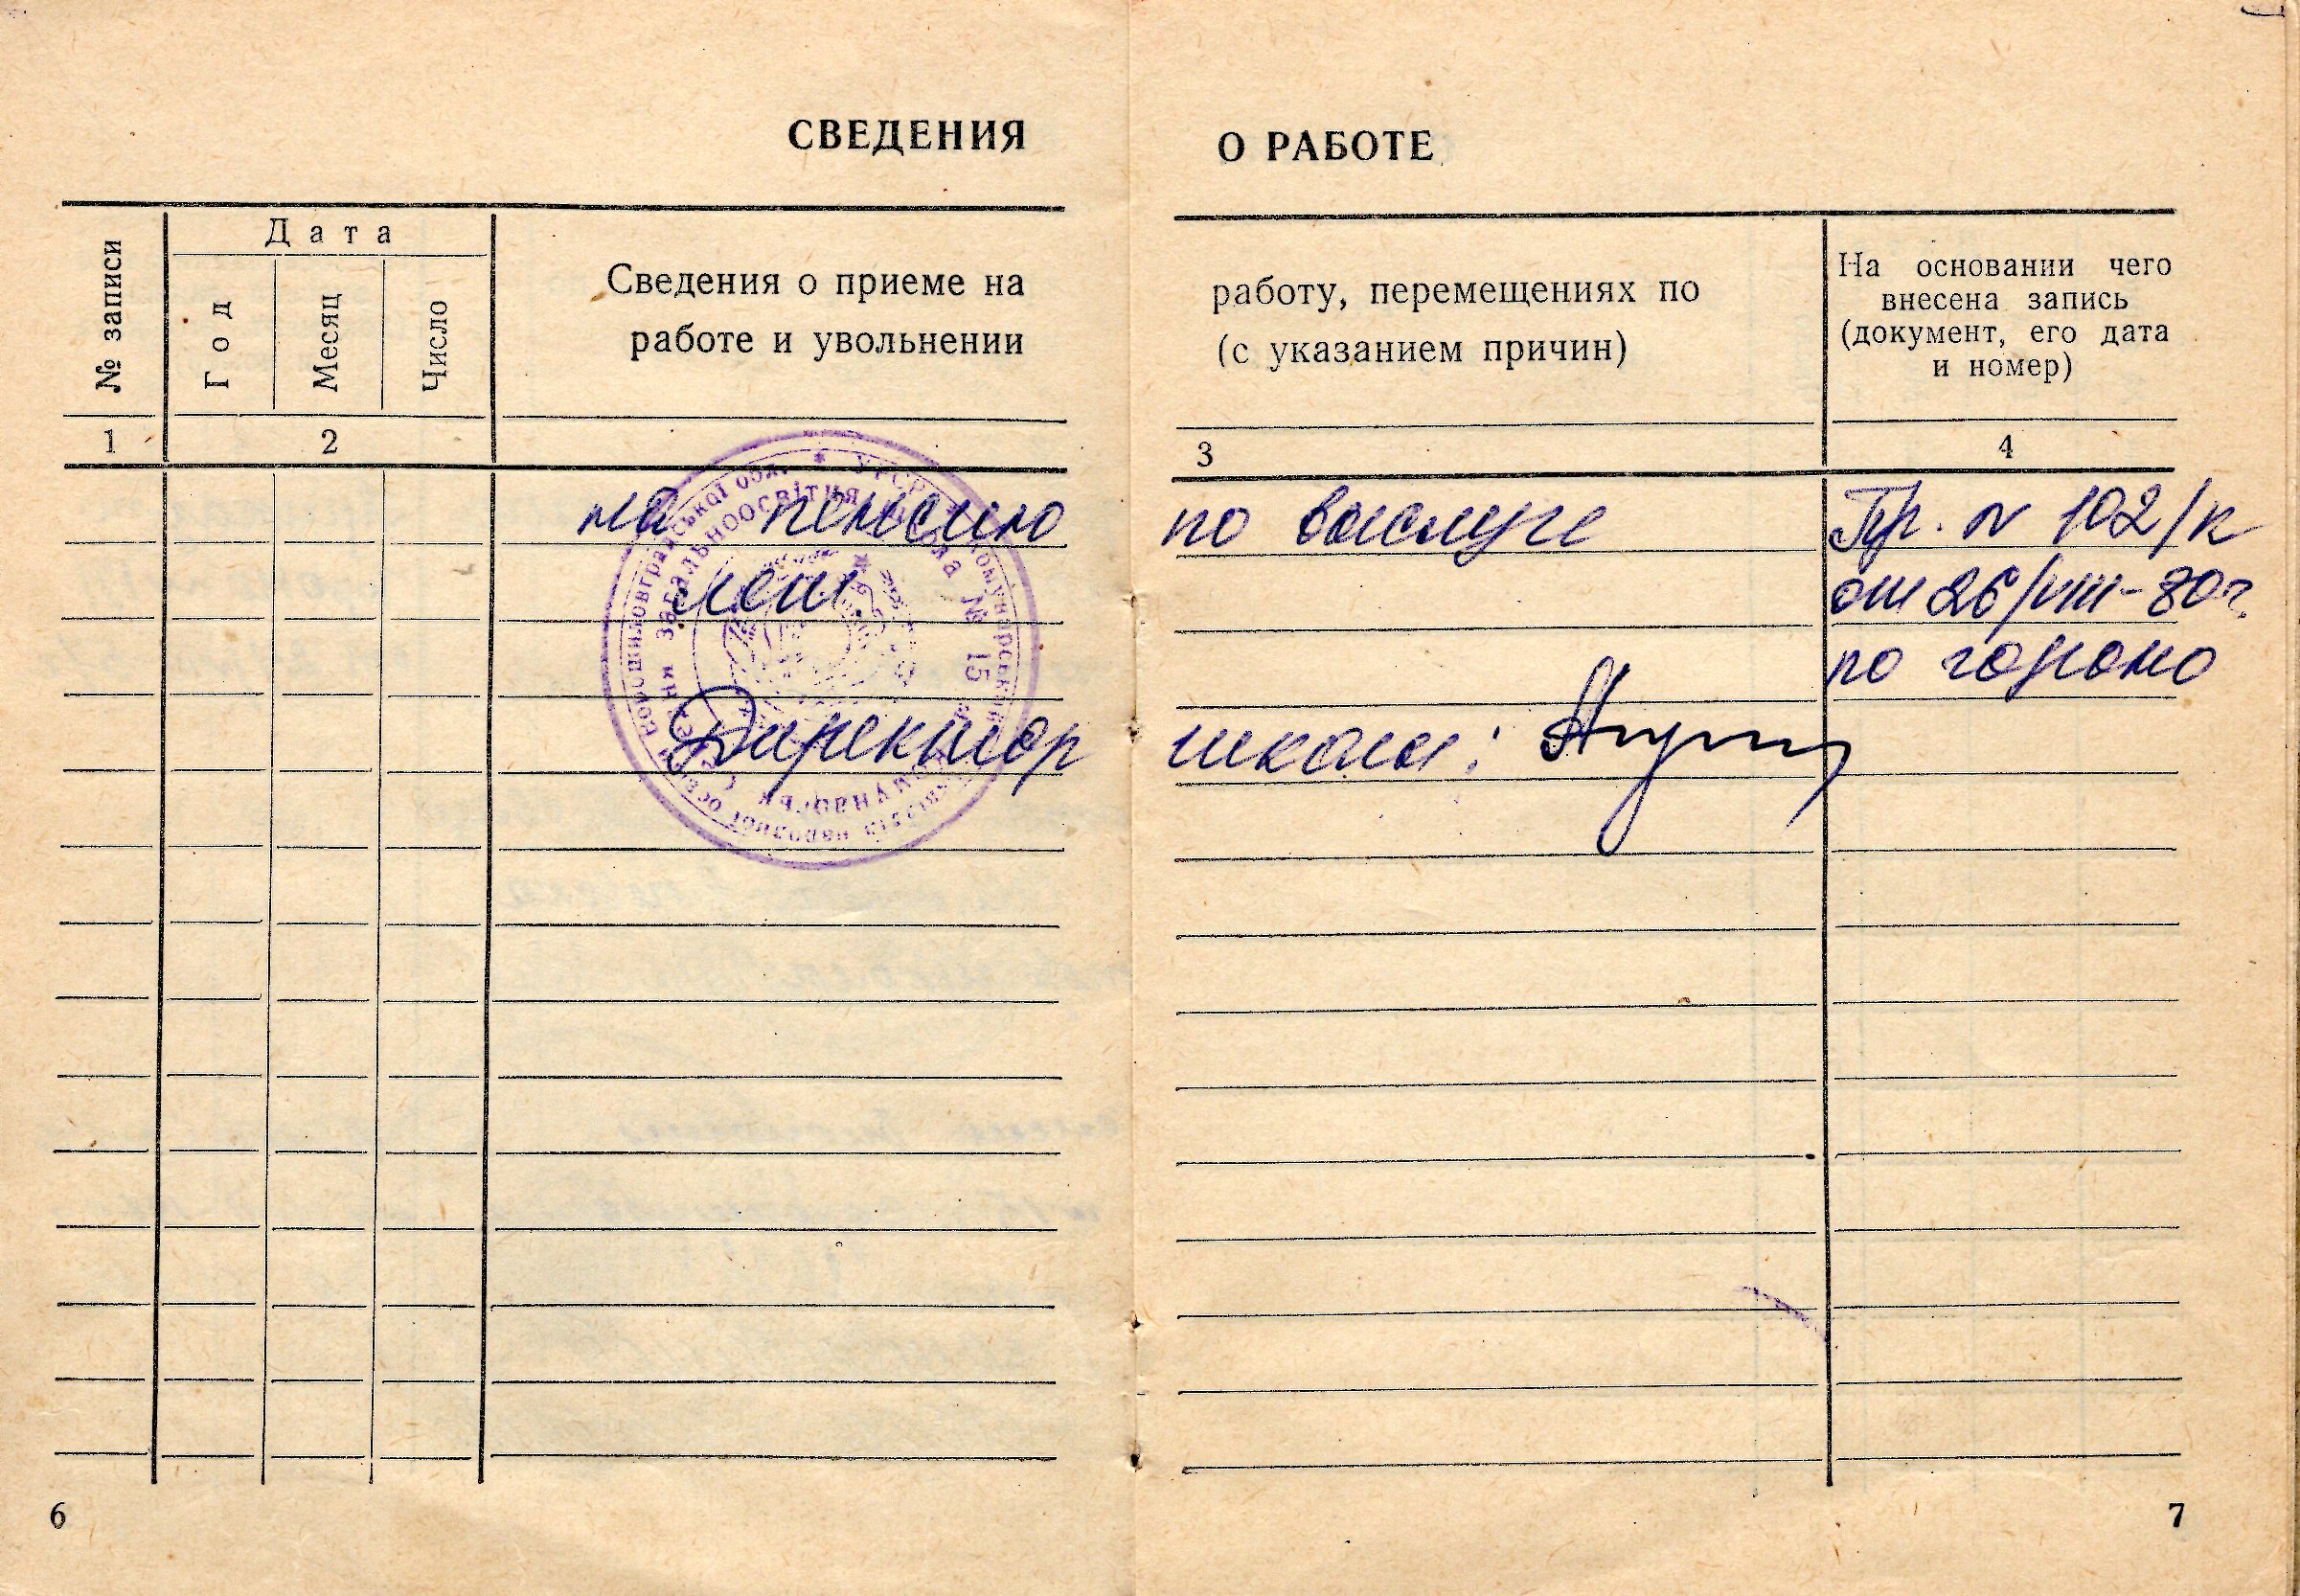 СВЕДЕНИЯ О РАБОТЕ
№ записи
Дата
Год
Месяц
Число
Сведения о приеме на работу, перемещениях по
работе и увольнении (с указанием причин)
На основании чего
внесена запись
(документ, его дата
и номер)
1 2 3 4
на пенсию по выслуге
лет
Директор школы:
Пр. № 102/к
от 26/VIII-80г.
по гороно
УРСР
загальноосвітня школа № 15
народної освіти
6
7